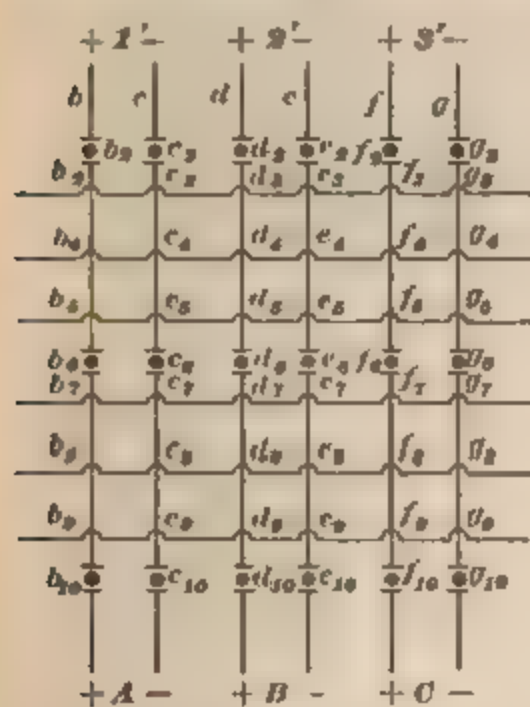 + 1' - + 2' - + 3' -
b c d e f g
b₂ c₂ d₂ e₂ f₂ g₂
b₃ c₃ d₃ e₃ f₃ g₃
b₄ c₄ d₄ e₄ f₄ g₄
b₅ c₅ d₅ e₅ f₅ g₅
b₆ c₆ d₆ e₆ f₆ g₆
b₇ c₇ d₇ e₇ f₇ g₇
b₈ c₈ d₈ e₈ f₈ g₈
b₉ c₉ d₉ e₉ f₉ g₉
b₁₀ c₁₀ d₁₀ e₁₀ f₁₀ g₁₀
+ A - + B - + C -